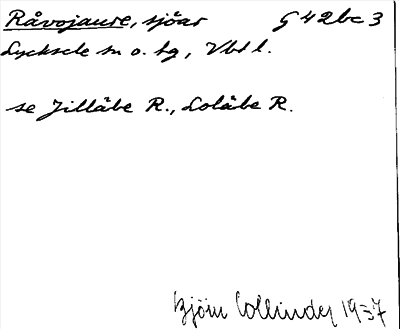 Råvojaure, sjöar G 42bc 3
Lycksele sn o. tg, Vbtl.
se Jillåbe R., Lolåbe R.
Björn Collinder 1937